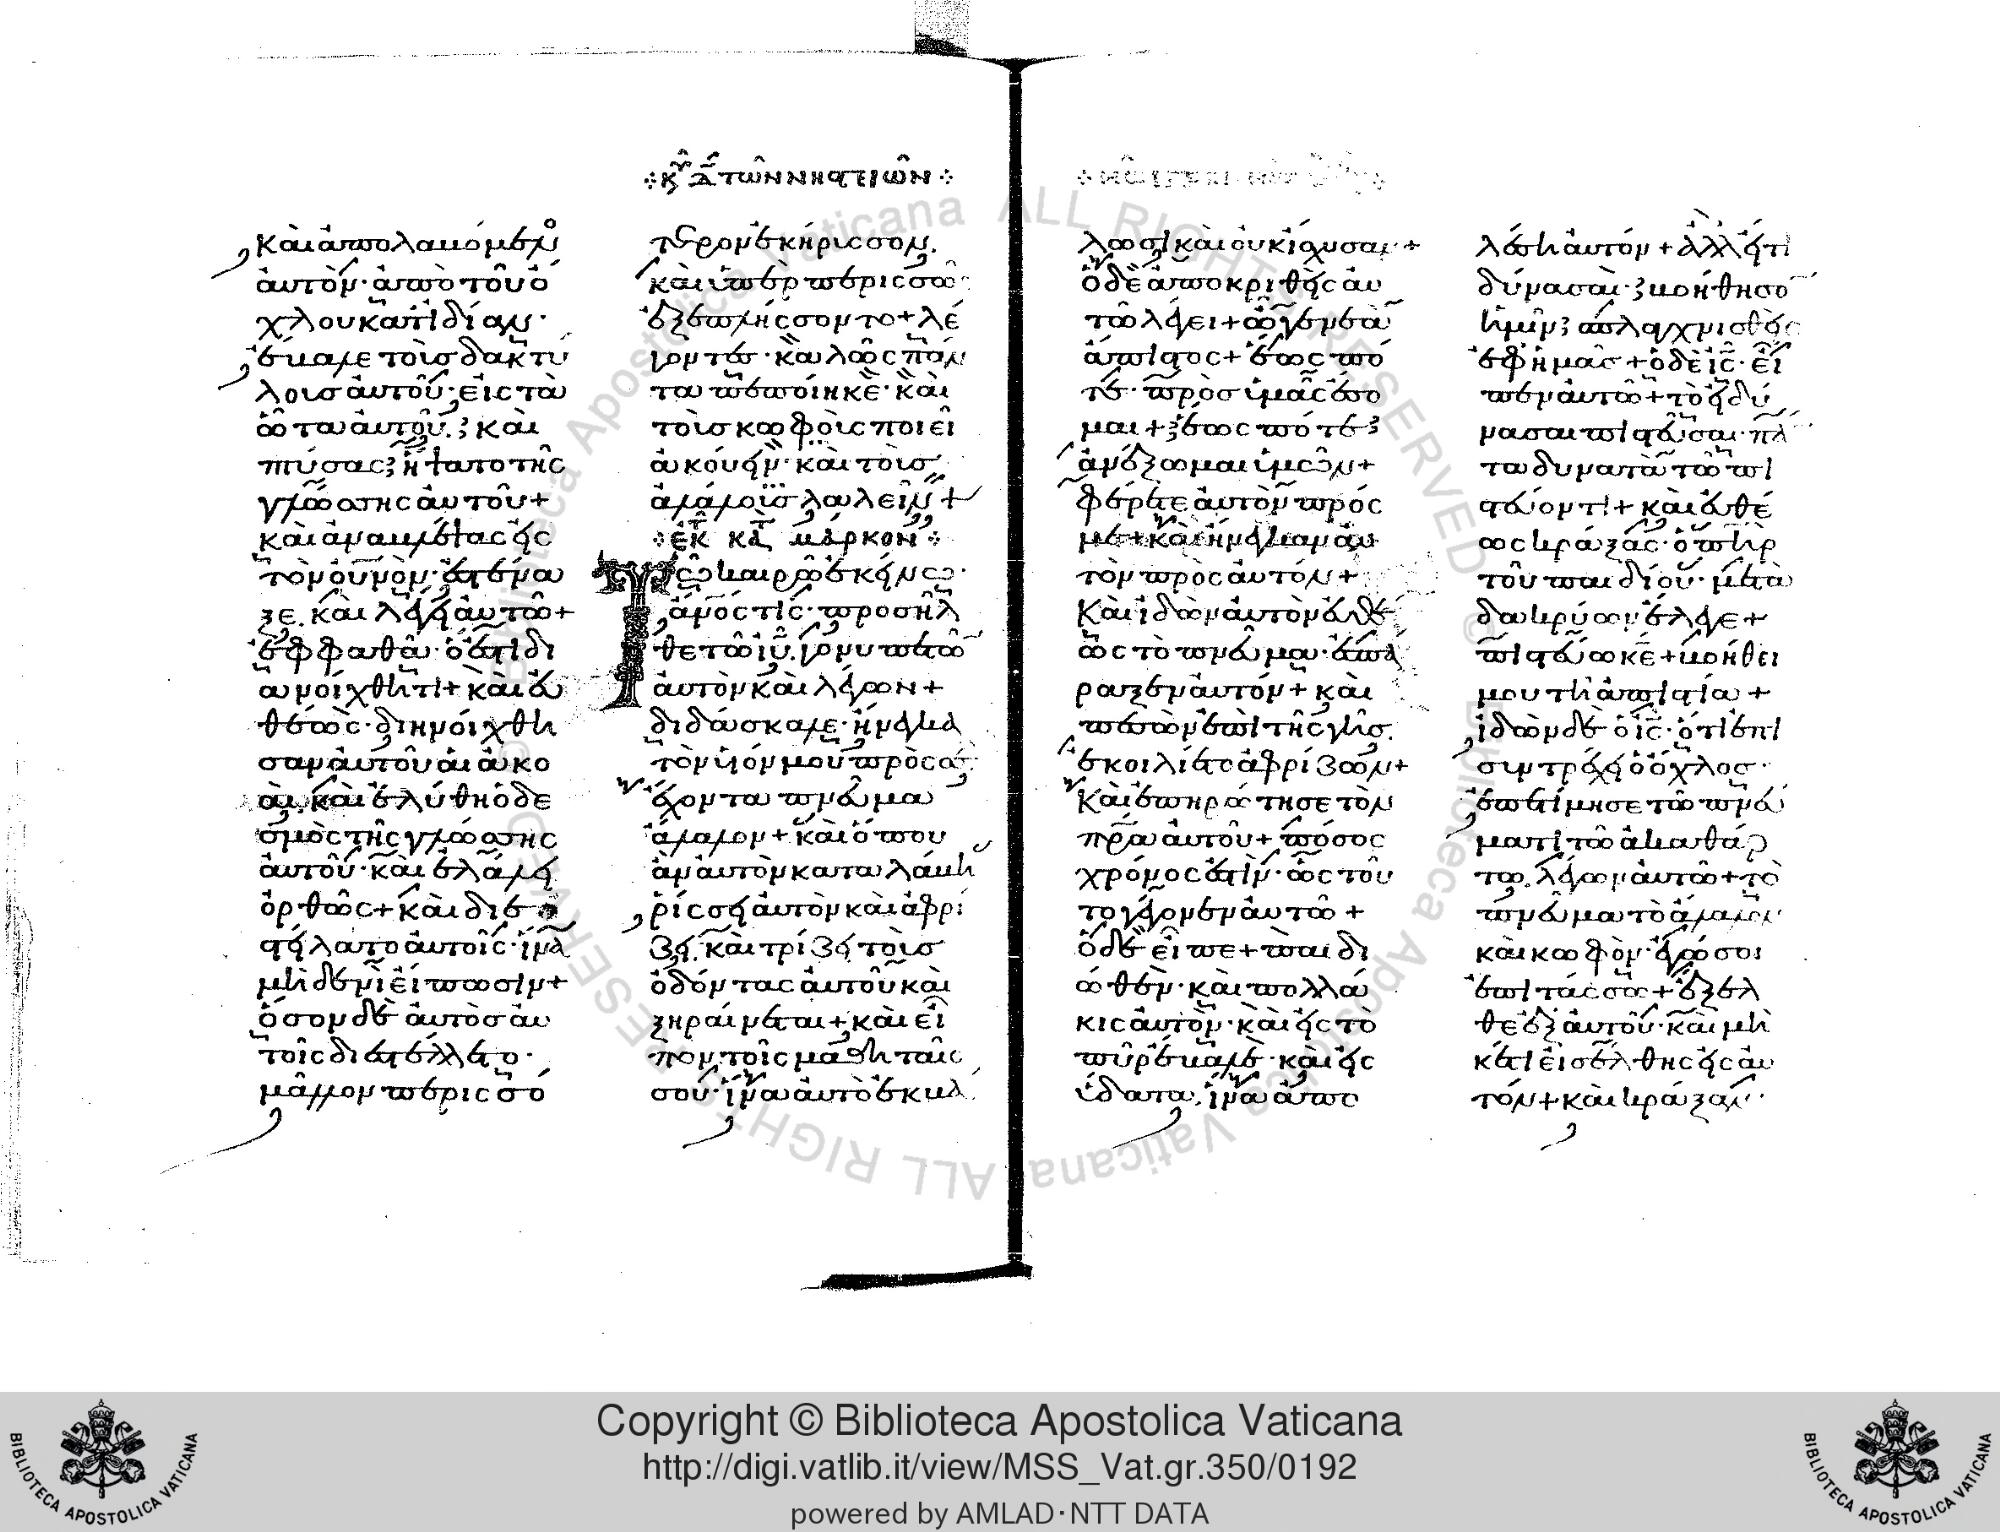 ⁘ κυ δ τῶν νηστειῶν ⁘
καὶ ἀπολαβόμενο
αὐτὸν· ἀπὸ τοῦ ὁ
χλου κατιδίαν·
ἔβαλε τοὺς δακτύ
λους αὐτοῦ· εἰς τὰ
ὦτα αὐτοῦ. καὶ
πτύσας ἥψατο τῆς
γλώσσης αὐτοῦ +
καὶ ἀναβλέψας εἰς
τὸν οὐνὸν· ἐστένα
ξε. καὶ λέγει αὐτῶ +
ἐφφαθὰ· ὅ ἐστι δι
ανοίχθητι + καὶ εὐ
θέως· διηνοίχθη
σαν αὐτοῦ αἱ ἀκο
αὶ. καὶ ἐλύθη ὁ δε
σμὸς τῆς γλώσσης
αὐτοῦ· καὶ ἐλάλει
ὀρθῶς + καὶ διε
στείλατο αὐτοῖς· ἵνα
μὴδενὶ εἴπωσιν +
ὅσον δὲ αὐτὸς αυ
τοῖς διεστέλλετο·
μᾶλλον περισσό
τερον ἐκήρισσον.
καὶ ὑπὲρ περισσῶ
ἐξεπλήσσοντο + λέ
γοντες· καλῶς πάν
τα πεποίηκε· καὶ
τοὺς κωφοὺς ποιεῖ
ἀκούειν· καὶ τοὺς
ἀλάλους λαλεῖν +
⁘ ἐκ κατ μάρκον ⁘
Τῶ καιρῶ ἐκείνω·
ἄνος τίς· προσῆλ
θε τῶ ιυ. γονυπετῶ
αὐτὸν καὶ λέγων +
διδάσκαλε· ἤνεγκα
τὸν υἱόν μου πρὸς σέ
ἔχοντα πνεῦμα
ἄλαλον + καὶ ὅπου
ἂν αὐτὸν καταλάβη
ρίσσει αὐτὸν καὶ ἀφρί
ζει. καὶ τρίζει τοὺς
ὀδόντας αὐτοῦ καὶ
ξηραίνεται + καὶ εἶ
πον τοῖς μαθηταῖς
σου· ἵνα αὐτὸ ἐκβά
λωσι καὶ οὐκ ἴσχυσαν +
ὁ δὲ ἀποκριθεὶς αὐ
τῶ λέγει + ὦ γενεὰ
ἄπιστος + ἕως πό
τε· πρὸς ὑμᾶς ἔσο
μαι + ἕως πότε
ἀνέξωμαι ὑμῶν +
φέρετε αὐτὸν πρός
με + καὶ ἤνεγκαν αυ
τὸν πρὸς αὐτόν +
Καὶ ἰδὼν αὐτὸν εὐθέ
ως τὸ πνεῦμα· ἐσπά
ραξεν αὐτόν + καὶ
πεσὼν ἐπὶ τῆς γῆς.
ἐκοιλίετο ἀφρίζων +
Καὶ ἐπηρώτησε τὸν
πρα αὐτοῦ + πόσος
χρόνος ἐστὶν· ὡς τοῦ
το γέγονεν αυτῶ +
ὁ δὲ εἶπε + παιδι
ώθεν· καὶ πολλά
κις αὐτὸν· καὶ εἰς τὸ
πῦρ ἔβαλε· καὶ εἰς
ὕδατα. ἵνα ἀπο
λέση αὐτόν + ἀλλεἴτι
δύνασαι· βοήθησο
ἡμῖν σπλαγχνισθεὶς
ἐφἡμᾶς + ὁ δὲ ις· εἶ
πεν αὐτῶ + τὸ εἰ δύ
νασαι πιστεῦσαι· πά
τα δυνατὰ τῶ πι
στεύοντι + καὶ εὐθέ
ως κράξας· ὁ πηρ
τοῦ παιδίου· μετὰ
δακρύων ἔλεγε +
πιστεύω κε + βοήθει
μου τῆ ἀπιστία +
ἰδὼν δὲ ὁ ις· ὅτι ἐπι
συντρέχει ὁ ὄχλος·
ἐπετίμησε τῶ πνεύ
ματι τῶ ἀκαθάρ
τω. λέγων αὐτῶ + τὸ
πνεῦμα τὸ ἄλαλον
καὶ κωφὸν· ἐγώ σοι
ἐπιτάσσω + ἔξελ
θε ἐξ αὐτοῦ· καὶ μὴ
κέτι εἰσέλθης εἰς αυ
τόν + καὶ κράξαν·
ALL RIGHTS RESERVED © Biblioteca Apostolica Vaticana
Copyright © Biblioteca Apostolica Vaticana
http://digi.vatlib.it/view/MSS_Vat.gr.350/0192
powered by AMLAD·NTT DATA
BIBLIOTECA APOSTOLICA VATICANA
BIBLIOTECA APOSTOLICA VATICANA